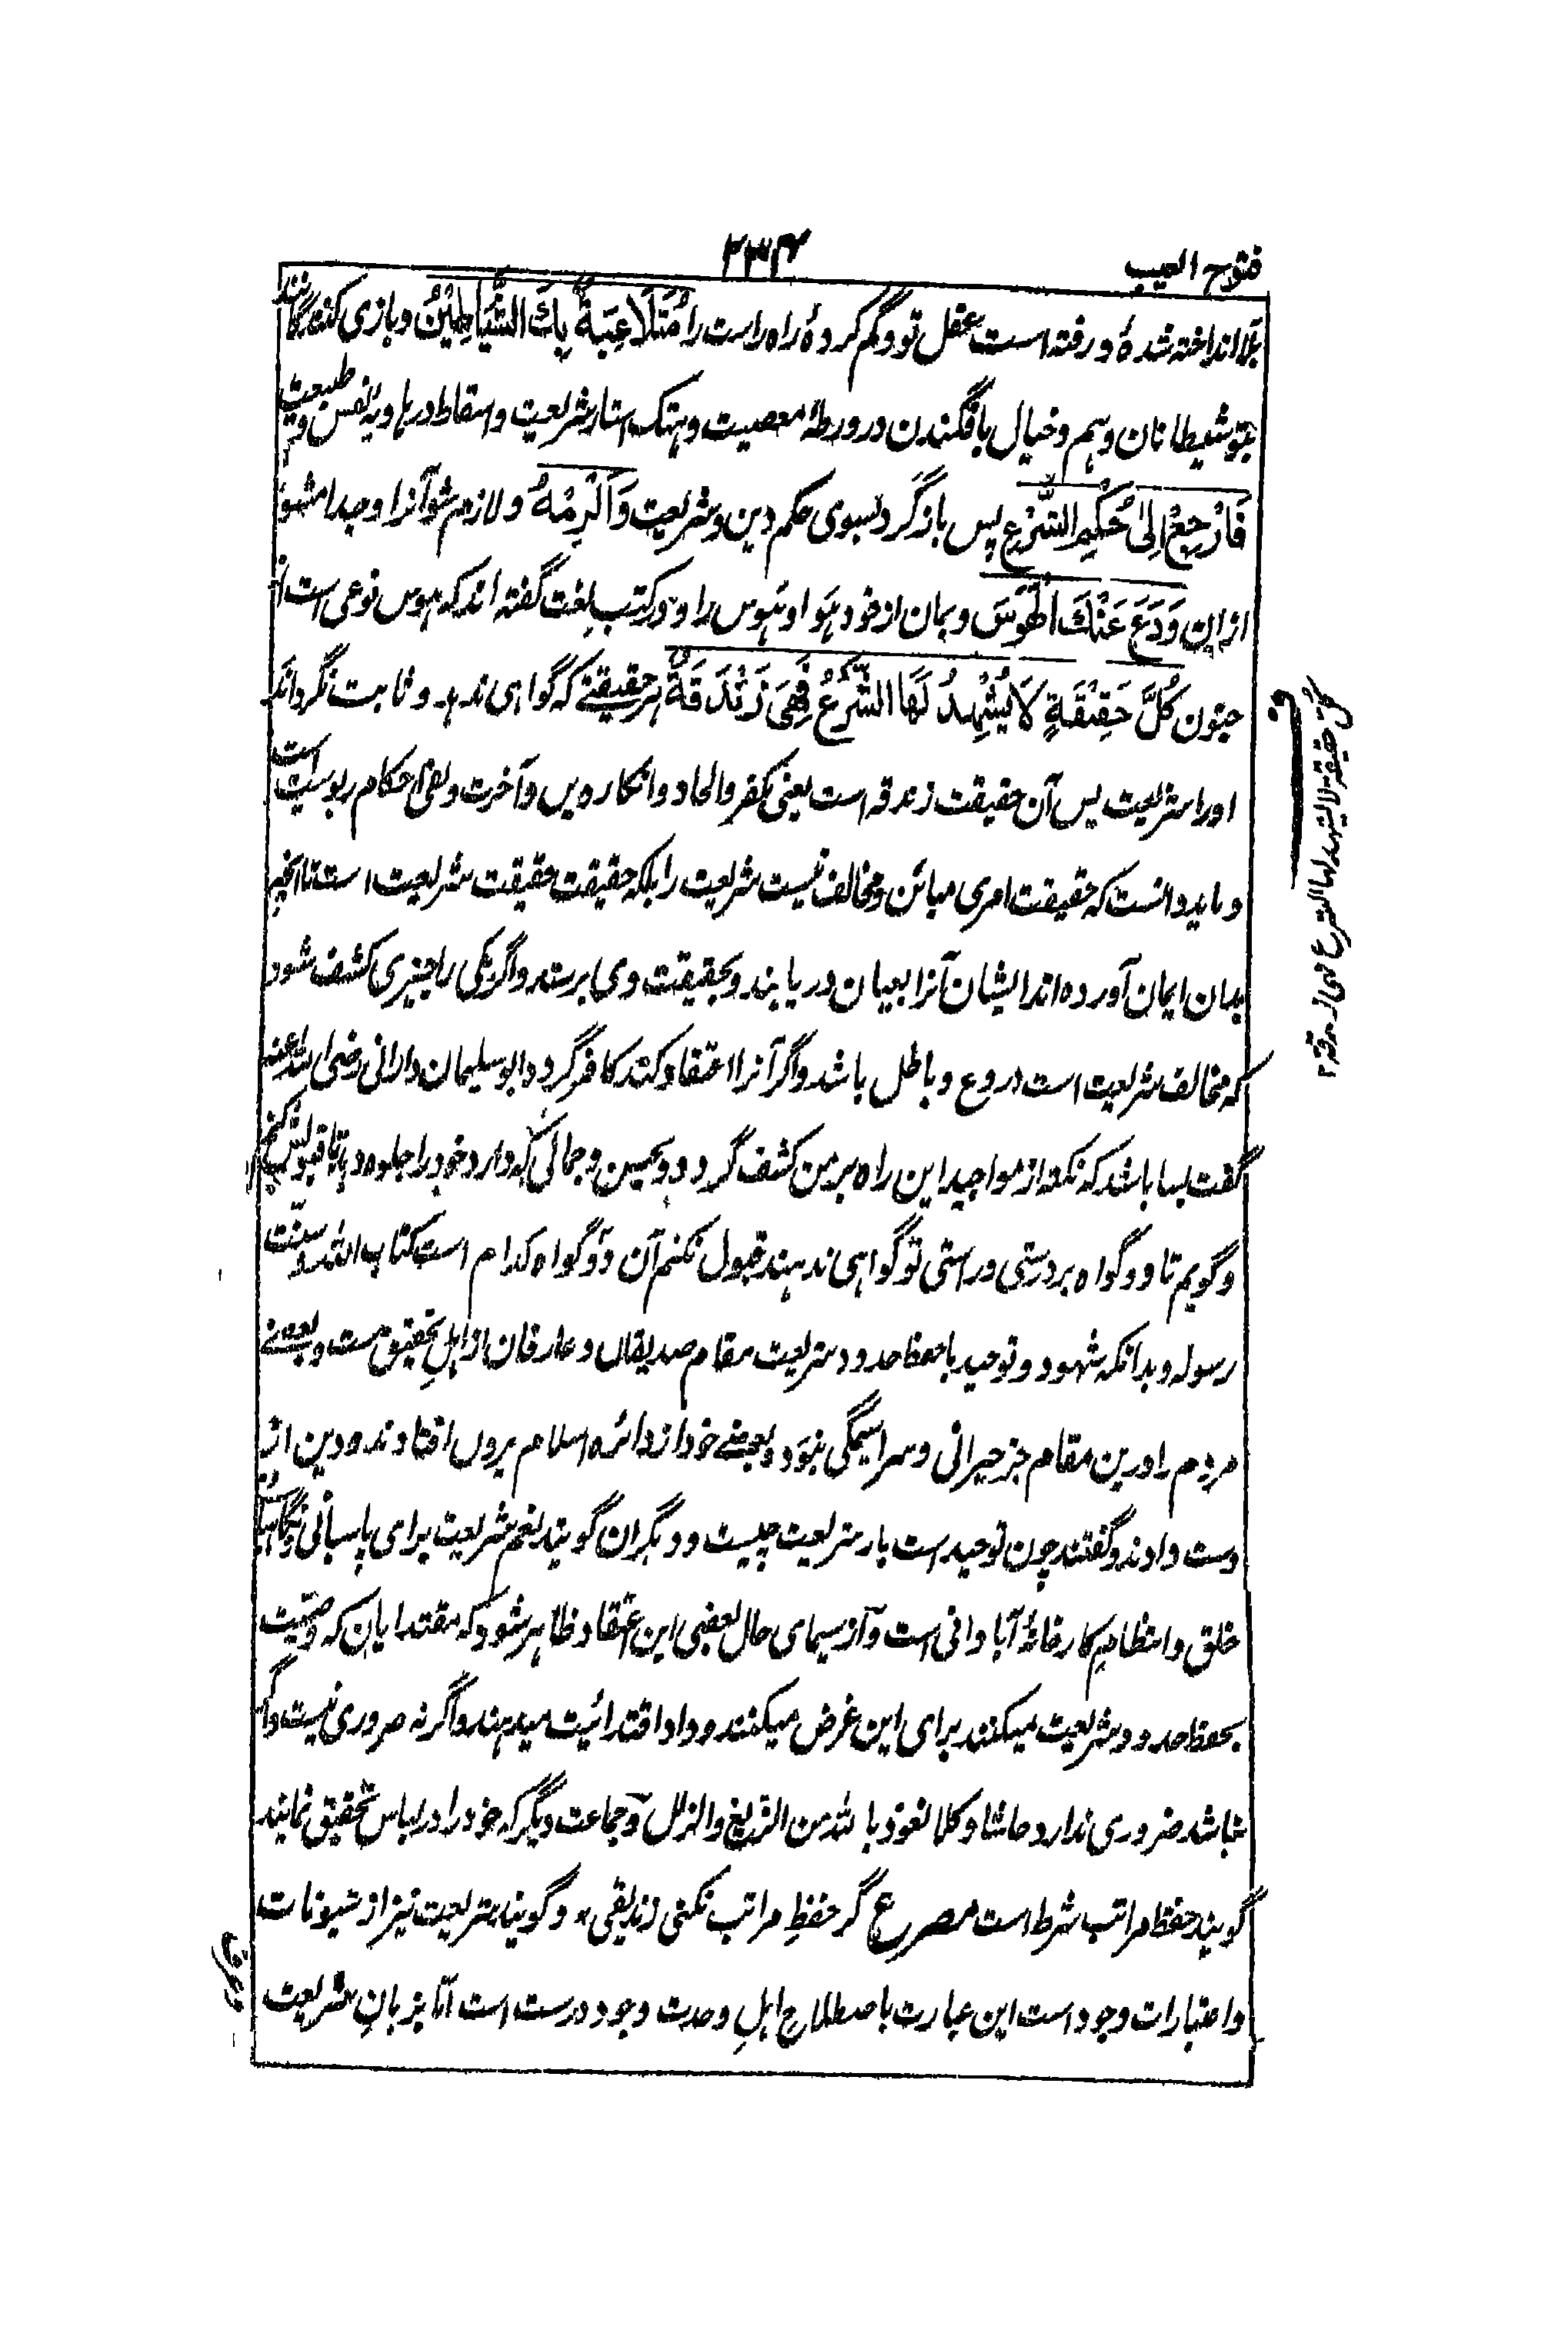 فتوح الغیب
۲۳۴
بلا انداخته شدهٔ و رفته است عقل تو و گم کردهٔ راه راست را مُتَلَاعِبَةٌ بِكَ الشَّيَاطِيْنُ و بازی کننده گانند
بتو شیطانان وهم و خیال بافگندن در ورطهٔ معصیت و هتک استار شریعت و اسقاط در هاویهٔ نفس و طبیعت
فَارْجِعْ اِلىٰ حُكْمِ الشَّرْعِ پس بازگرد بسوی حکم دین و شریعت وَاَلْزِمْهُ و لازم شو آنرا و جدا مشو
ازان وَدَعْ عَنْكَ الْهَوَسَ و بمان از خود هوا و هوس را و در کتب لغت گفته اند که هوس نوعی است از
جنون كُلُّ حَقِيْقَةٍ لَا يَشْهَدُ لَهَا الشَّرْعُ فَهِيَ زَنْدَقَةٌ هر حقیقتے که گواهی ندهد و ثابت نگرداند
اورا شریعت پس آن حقیقت زندقه است یعنی کفر و الحاد و انکار دین و آخرت و نفی احکام ربوبیت است
و باید دانست که حقیقت امری مبائن و مخالف نیست شریعت را بلکه حقیقت حقیقت شریعت است تا آنچه
بدان ایمان آورده اند ایشان آنرا بعیان دریابند و بحقیقت وی برسند و اگر یکی را چیزی کشف شود
که مخالف شریعت است دروغ و باطل باشد و اگر آنرا اعتقاد کند کافر گردد ابو سلیمان دارانی رضی الله عنه
گفت بسا باشد که نکته از مواجید این راه بر من کشف گردد و بحسن و جمالی که دارد خود را جلوه دهد تا قبولش کنم
و گویم تا دو گواه بر درستی و راستی تو گواهی ندهند قبول نکنم آن دو گواه کدام است کتاب الله و سنّت
رسوله و بدانکه شهود و توحید با حفظ حدود شریعت مقام صدیقان و عارفان از اهلِ تحقیق ست و بعضے
مردم را درین مقام جز حیرانی و سراسیمگی نبود و بعضے خود از دائره اسلام بیرون افتادند و دین از
دست دادند و گفتند چون توحید است بار شریعت چیست و دیگران گویند نعم شریعت برای پاسبانی و نگاهبانی
خلق و انتظامِ کارخانهٔ آبادانی است و از سیمای حال بعضی این اعتقاد ظاهر شود که مقتدایان که وصیّت
بحفظ حدود شریعت میکنند برای این غرض میکنند و داد اقتدائیت میدهند و اگرنه ضروری نیست و اگر
نباشد ضروری ندارد حاشا و کلا نعوذ بالله من الزیغ و الزلل و جماعت دیگر که خود را در لباس تحقیق نمایند
گویند حفظ مراتب شرط است مصرع گر حفظِ مراتب نکنی زندیقی * و گویند شریعت نیز از شیونات
و اعتبارات وجود است این عبارت باصطلاح اهلِ وحدت وجود درست است امّا بزبانِ شریعت
کل حقیقة لا یشهد لها الشرع فهی زندقة